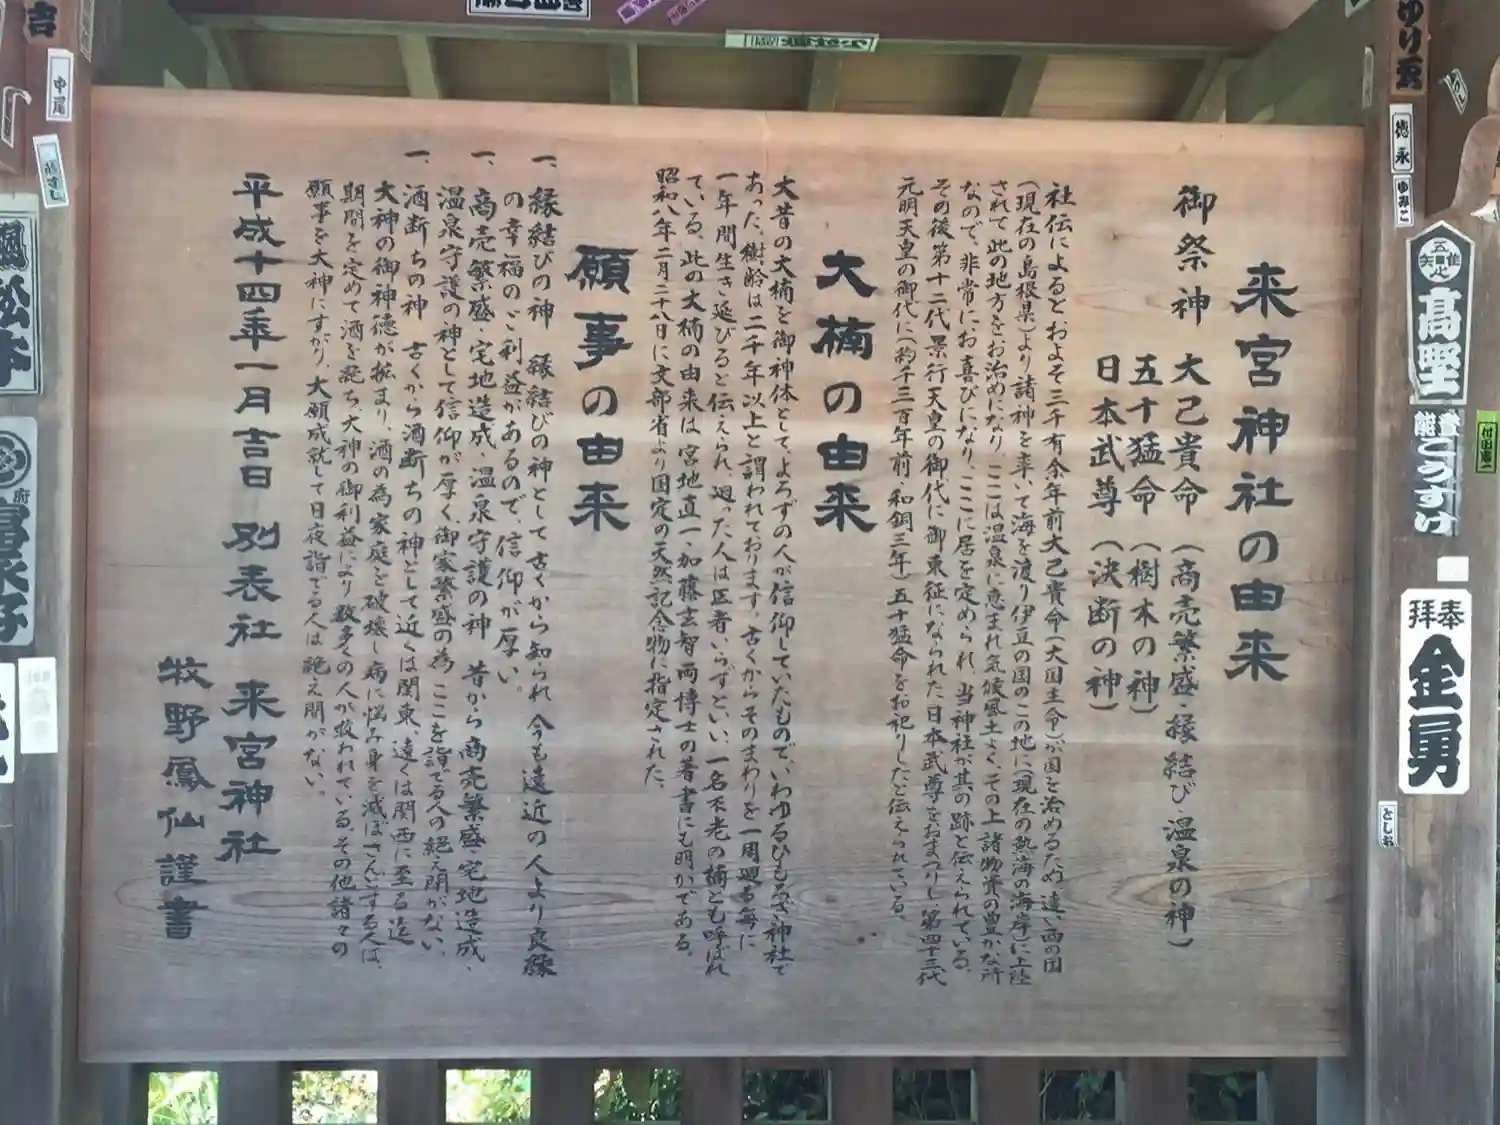 来宮神社の由来
御祭神　大己貴命（商売繁盛・縁結び・温泉の神）
五十猛命（樹木の神）
日本武尊（決断の神）
社伝によるとおよそ三千有余年前大己貴命(大国主命)が国を治めるため、遠い西の国
(現在の島根県)より諸神を率いて海を渡り伊豆の国のこの地に(現在の熱海の海岸)に上陸
されて此の地方をお治めになり、ここは温泉に恵まれ気候風土よく、その上諸物資の豊かな所
なので、非常にお喜びになり、ここに居を定められ、当神社が其の跡と伝えられている。
その後第十二代景行天皇の御代に御東征になられた、日本武尊をおまつりし第四十三代
元明天皇の御代に(約千三百年前、和銅三年)五十猛命をお祀りしたと伝えられている。
大楠の由来
大昔の大楠を御神体として、よろずの人が信仰していたもので、いわゆるひもろぎ神社で
あった、樹齢は二千年以上と謂われております。古くからそのまわりを一周廻る毎に
一年間生き延びると伝えられ、廻った人は医者いらずといい、一名不老の楠とも呼ばれ
ている、此の大楠の由来は宮地直一・加藤玄智両博士の著書にも明かである。
昭和八年二月二十八日に文部省より国定の天然記念物に指定された。
願事の由来
一、縁結びの神　縁結びの神として古くから知られ今も遠近の人より良縁
の幸福のご利益があるので、信仰が厚い。
一、商売繁盛・宅地造成・温泉守護の神　昔から商売繁盛・宅地造成・
温泉守護の神として信仰が厚く、御家繁盛の為ここを詣でる人の絶え間がない。
一、酒断ちの神　古くから酒断ちの神として近くは関東、遠くは関西に至る迄
大神の御神徳が拡まり、酒の為家庭を破壊し病に悩み身を滅ぼさんとする人は、
期間を定めて酒を絶ち大神の御利益により数多くの人が救われている。その他諸々の
願事を大神にすがり、大願成就して日夜詣でる人は絶え間がない。
平成十四年一月吉日　別表社　来宮神社
牧野鳳仙謹書
ゆみこ
徳永
高野
こうすけ
奉拝
金勇
としお
中尾
吉
松本